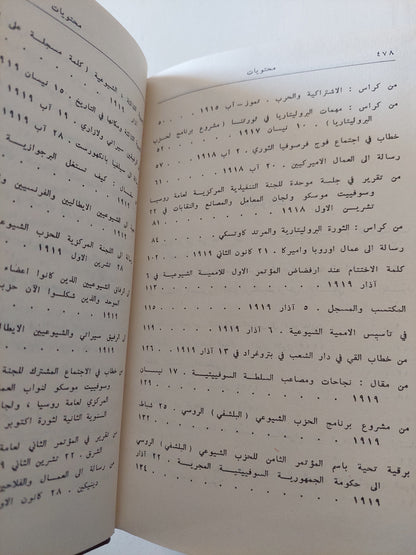 ٤٧٨
محتويات
من كراس : الاشتراكية والحرب . تموز - آب ١٩١٥ . ٥٠
من كراس : مهمات البروليتاريا في ثورتنا ( مشروع برنامج لحزب
البروليتاريا ) . ١٠ نيسان ١٩١٧ . . . . . ٥٢
خطاب في اجتماع فوج فرسوفيا الثوري . ٢ آب ١٩١٨ . ٥٧
رسالة الى العمال الاميركيين . ٢٠ آب ١٩١٨ . . . ٦٠
من تقرير في جلسة موحدة للجنة التنفيذية المركزية لعامة روسيا
وسوفييت موسكو ولجان المعامل والمصانع والنقابات في ٢٢
تشرين الاول ١٩١٨ . . . . . . ٨١
من كراس : الثورة البروليتارية والمرتد كاوتسكي . . . ٨٤
رسالة الى عمال اوروبا واميركا . ٢١ كانون الثاني ١٩١٩
كلمة الاختتام عند ارفضاض المؤتمر الاول للاممية الشيوعية في ٦
آذار ١٩١٩ . . . . . . . ١١٣
المكتسب والمسجل . ٥ آذار ١٩١٩ . . . . ١١٥
في تأسيس الاممية الشيوعية . ٦ آذار ١٩١٩ . . .
من خطاب القي في دار الشعب في بتروغراد في ١٣ آذار ١٩١٩ . ١٢٦
من مقال : نجاحات ومصاعب السلطة السوفييتية . ١٧ نيسان
١٩١٩ . . . . . . . . ١٢٩
من مشروع برنامج الحزب الشيوعي ( البلشفي ) الروسي . ٢٥ شباط
١٩١٩ . . . . . . . . ١٣٢
برقية تحية باسم المؤتمر الثامن للحزب الشيوعي ( البلشفي ) الروسي
الى حكومة الجمهورية السوفييتية المجرية . ٢٢ آذار
١٩١٩ . . . . . . . . ١٣٤
محتويات
الشيوعية ( كلمة مسجلة على
ومكانها في التاريخ . ١٥ نيسان ١٩١٩
سيراتي ولازاري . ١٩ آب ١٩١٩
سيلفيا بانكهورست . ٢٨ آب ١٩١٩
كيف تستغل البرجوازية
الشيوعيين الايطاليين والفرنسيين
اللجنة المركزية للحزب الشيوعي
٢٨ تشرين الاول ١٩١٩ . . .
الرفاق الشيوعيين الذين كانوا اعضاء
الموحد والذين شكلوا الآن حزب
١٩١٩ . . . . .
الرفيق سيراتي والشيوعيين الايطا
١٩١٩ . . . . .
خطاب في الاجتماع المشترك للجنة
وسوفييت موسكو لنواب العما
المركزي لعامة روسيا ، ولجا
السنوية الثانية لثورة اكتوبر
من تقرير في المؤتمر الثاني لعامة
الشرق . ٢٢ تشرين الثاني ١٩
من رسالة الى العمال والفلاحين
دينيكين . ٢٨ كانون الاو